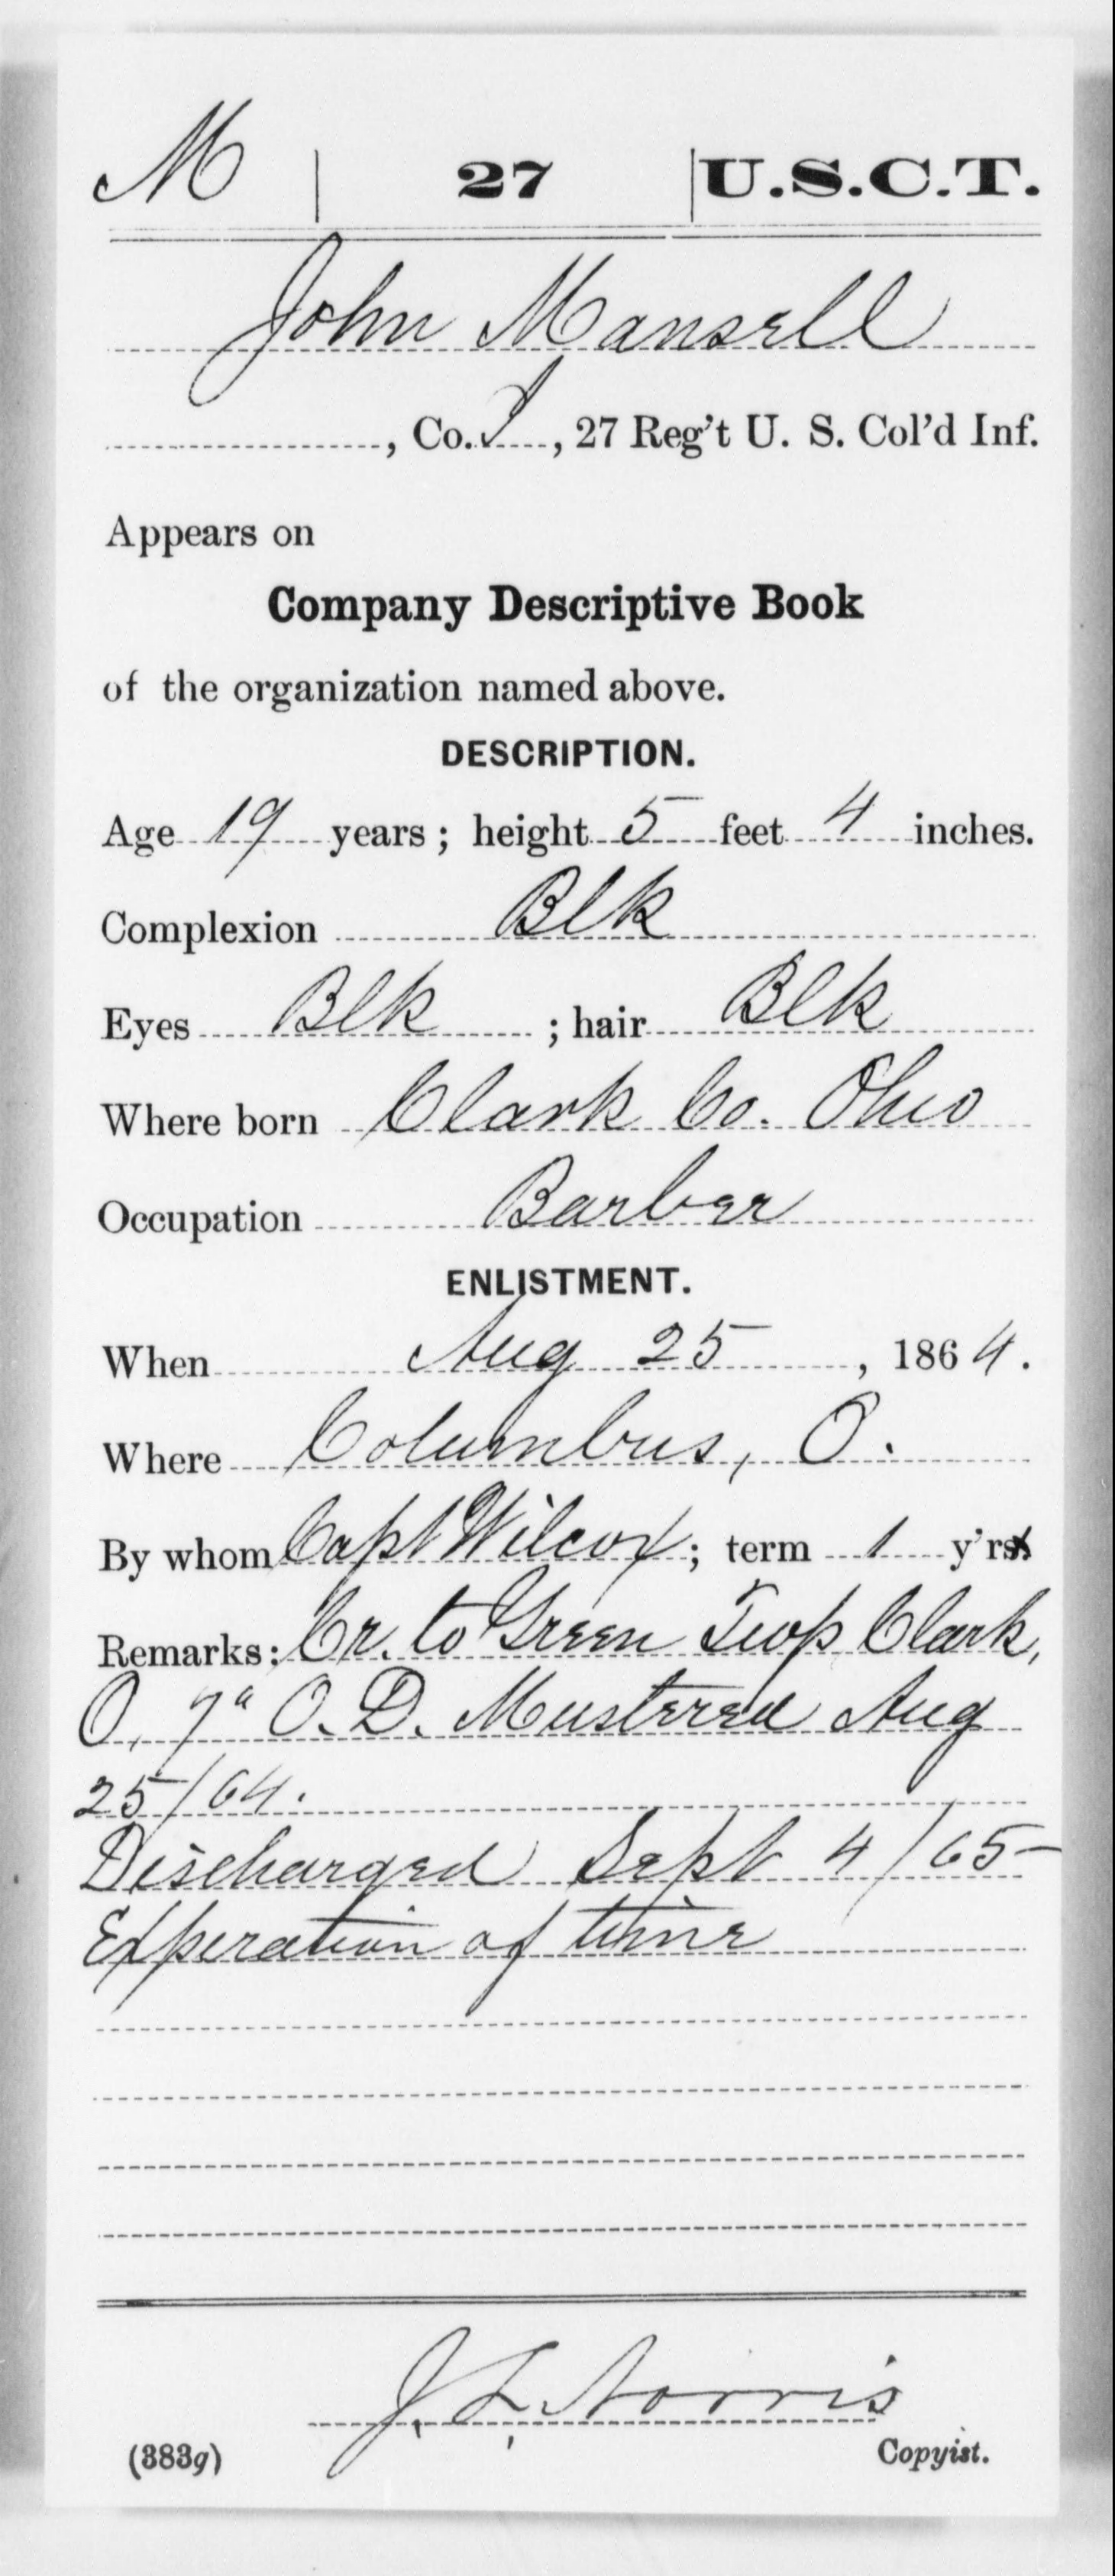 M | 27 | U.S.C.T.
John Mansell
, Co. I, 27 Reg't U. S. Col'd Inf.
Appears on
Company Descriptive Book
of the organization named above.
DESCRIPTION.
Age 19 years; height 5 feet 4 inches.
Complexion Blk
Eyes Blk ; hair Blk
Where born Clark Co. Ohio
Occupation Barber
ENLISTMENT.
When Aug 25, 1864.
Where Columbus, O.
By whom Capt Wilcox; term 1 y'rs.
Remarks: Cr. to Green Twp Clark,
O, 7" O.D. Mustered Aug
25/64.
Discharged Sept 4/65-
Experation of time
J. L. Norris
(383g) Copyist.